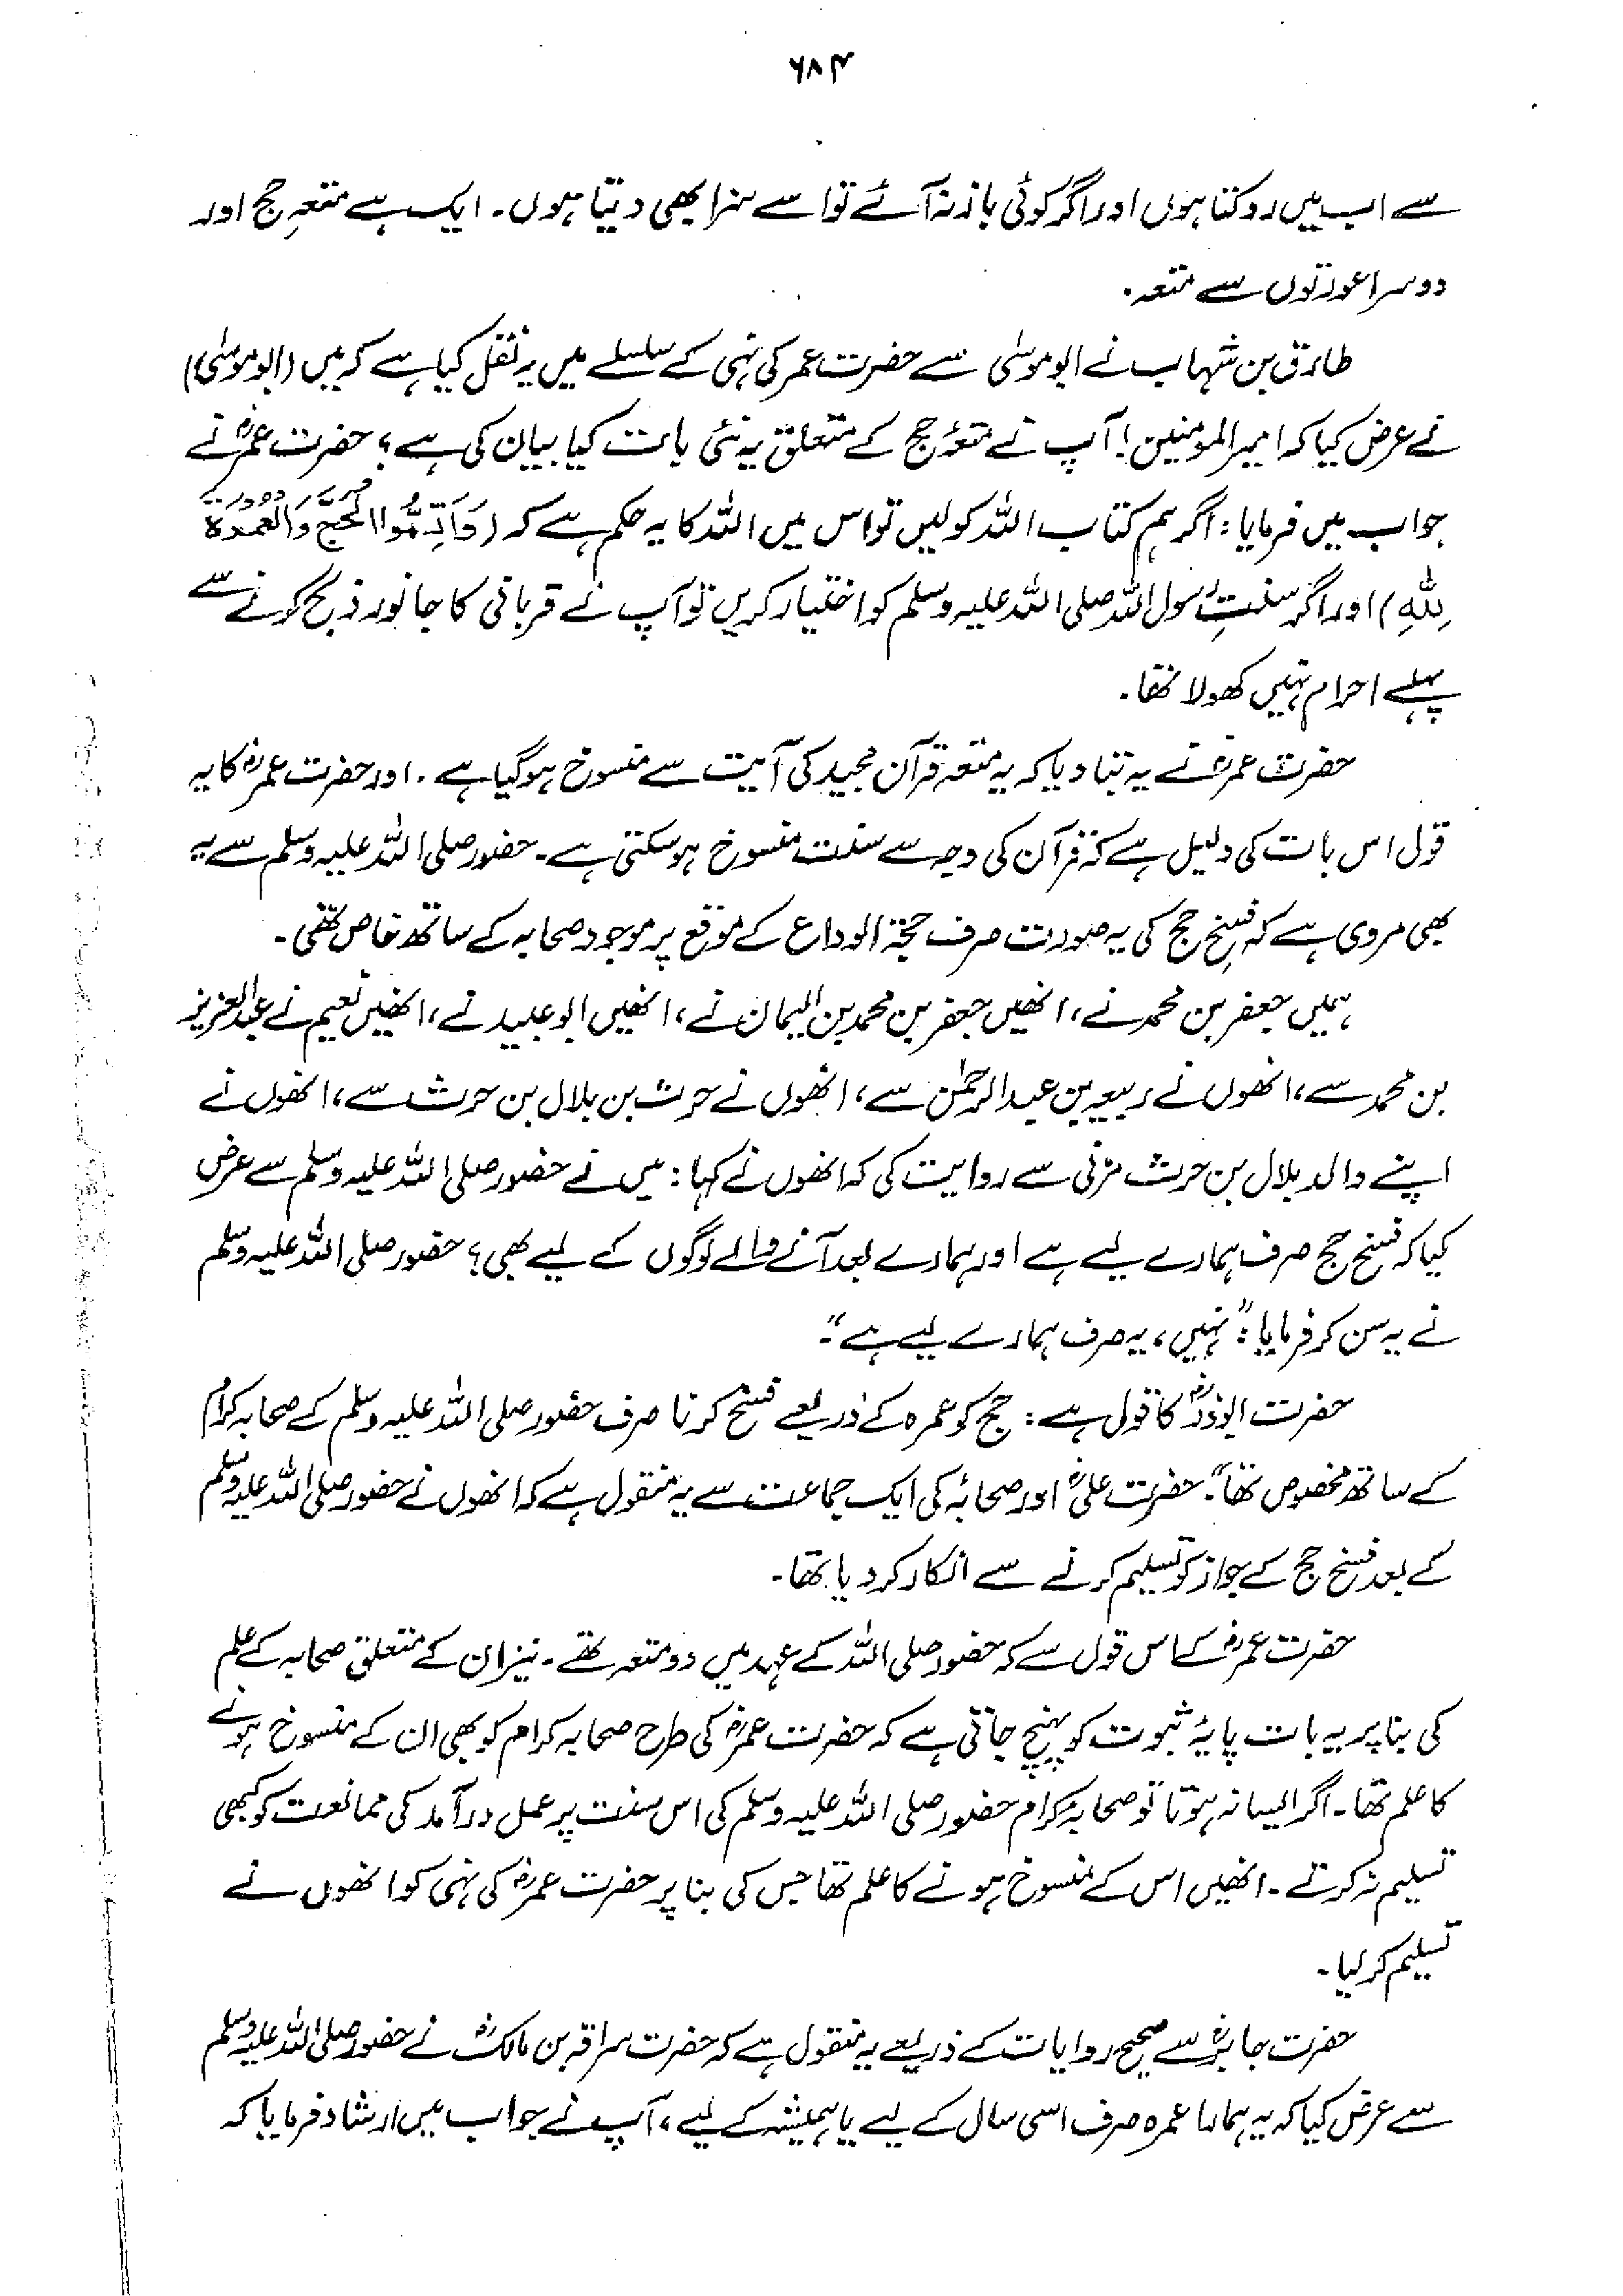 ۶۸۴
سے اب میں روکتا ہوں اور اگر کوئی باز نہ آئے تو اسے سزا بھی دیتا ہوں۔ ایک ہے متعۂ حج اور
دوسرا عورتوں سے متعہ۔
طارق بن شہاب نے ابو موسیٰ سے حضرت عمر کی نہی کے سلسلے میں یہ نقل کیا ہے کہ میں (ابو موسیٰ)
نے عرض کیا کہ امیر المومنین! آپ نے متعۂ حج کے متعلق یہ نئی بات کیا بیان کی ہے؟ حضرت عمرؓ نے
جواب میں فرمایا: اگر ہم کتاب اللہ کو لیں تو اس میں اللہ کا یہ حکم ہے کہ (وَاَتِمُّوا الْحَجَّ وَالْعُمْرَۃَ
لِلّٰہِ) اور اگر سنتِ رسول اللہ صلی اللہ علیہ وسلم کو اختیار کریں تو آپ نے قربانی کا جانور ذبح کرنے سے
پہلے احرام نہیں کھولا تھا۔
حضرت عمرؓ نے یہ بتا دیا کہ یہ متعہ قرآن مجید کی آیت سے منسوخ ہو گیا ہے۔ اور حضرت عمرؓ کا یہ
قول اس بات کی دلیل ہے کہ قرآن کی وجہ سے سنت منسوخ ہو سکتی ہے۔ حضور صلی اللہ علیہ وسلم سے یہ
بھی مروی ہے کہ فسخِ حج کی یہ صورت صرف حجۃ الوداع کے موقع پر موجود صحابہ کے ساتھ خاص تھی۔
ہمیں جعفر بن محمد نے، انھیں جعفر بن محمد بن الیمان نے، انھیں ابو عبید نے، انھیں نعیم نے عبدالعزیز
بن محمد سے، انھوں نے ربیعہ بن عبدالرحمٰن سے، انھوں نے حرث بن بلال بن حرث سے، انھوں نے
اپنے والد بلال بن حرث مزنی سے روایت کی کہ انھوں نے کہا: میں نے حضور صلی اللہ علیہ وسلم سے عرض
کیا کہ فسخ حج صرف ہمارے لیے ہے اور ہمارے بعد آنے والے لوگوں کے لیے بھی؟ حضور صلی اللہ علیہ وسلم
نے یہ سن کر فرمایا: ”نہیں، یہ صرف ہمارے لیے ہے“۔
حضرت ابوذرؓ کا قول ہے: حج کو عمرہ کے ذریعے فسخ کرنا صرف حضور صلی اللہ علیہ وسلم کے صحابہ کرام
کے ساتھ مخصوص تھا“۔ حضرت علیؓ اور صحابہ کی ایک جماعت سے یہ منقول ہے کہ انھوں نے حضور صلی اللہ علیہ وسلم
کے بعد فسخ حج کے جواز کو تسلیم کرنے سے انکار کر دیا تھا۔
حضرت عمرؓ کے اس قول سے کہ حضور صلی اللہ کے عہد میں دو متعہ تھے۔ نیز ان کے متعلق صحابہ کے علم
کی بنا پر یہ بات پایۂ ثبوت کو پہنچ جاتی ہے کہ حضرت عمرؓ کی طرح صحابہ کرام کو بھی ان کے منسوخ ہونے
کا علم تھا۔ اگر ایسا نہ ہوتا تو صحابہ کرام حضور صلی اللہ علیہ وسلم کی اس سنت پر عمل درآمد کی ممانعت کو کبھی
تسلیم نہ کرتے۔ انھیں اس کے منسوخ ہونے کا علم تھا جس کی بنا پر حضرت عمرؓ کی نہی کو انھوں نے
تسلیم کر لیا۔
حضرت جابرؓ سے صحیح روایات کے ذریعے یہ منقول ہے کہ حضرت سراقہ بن مالکؓ نے حضور صلی اللہ علیہ وسلم
سے عرض کیا کہ یہ ہمارا عمرہ صرف اسی سال کے لیے یا ہمیشہ کے لیے، آپ نے جواب میں ارشاد فرمایا کہ